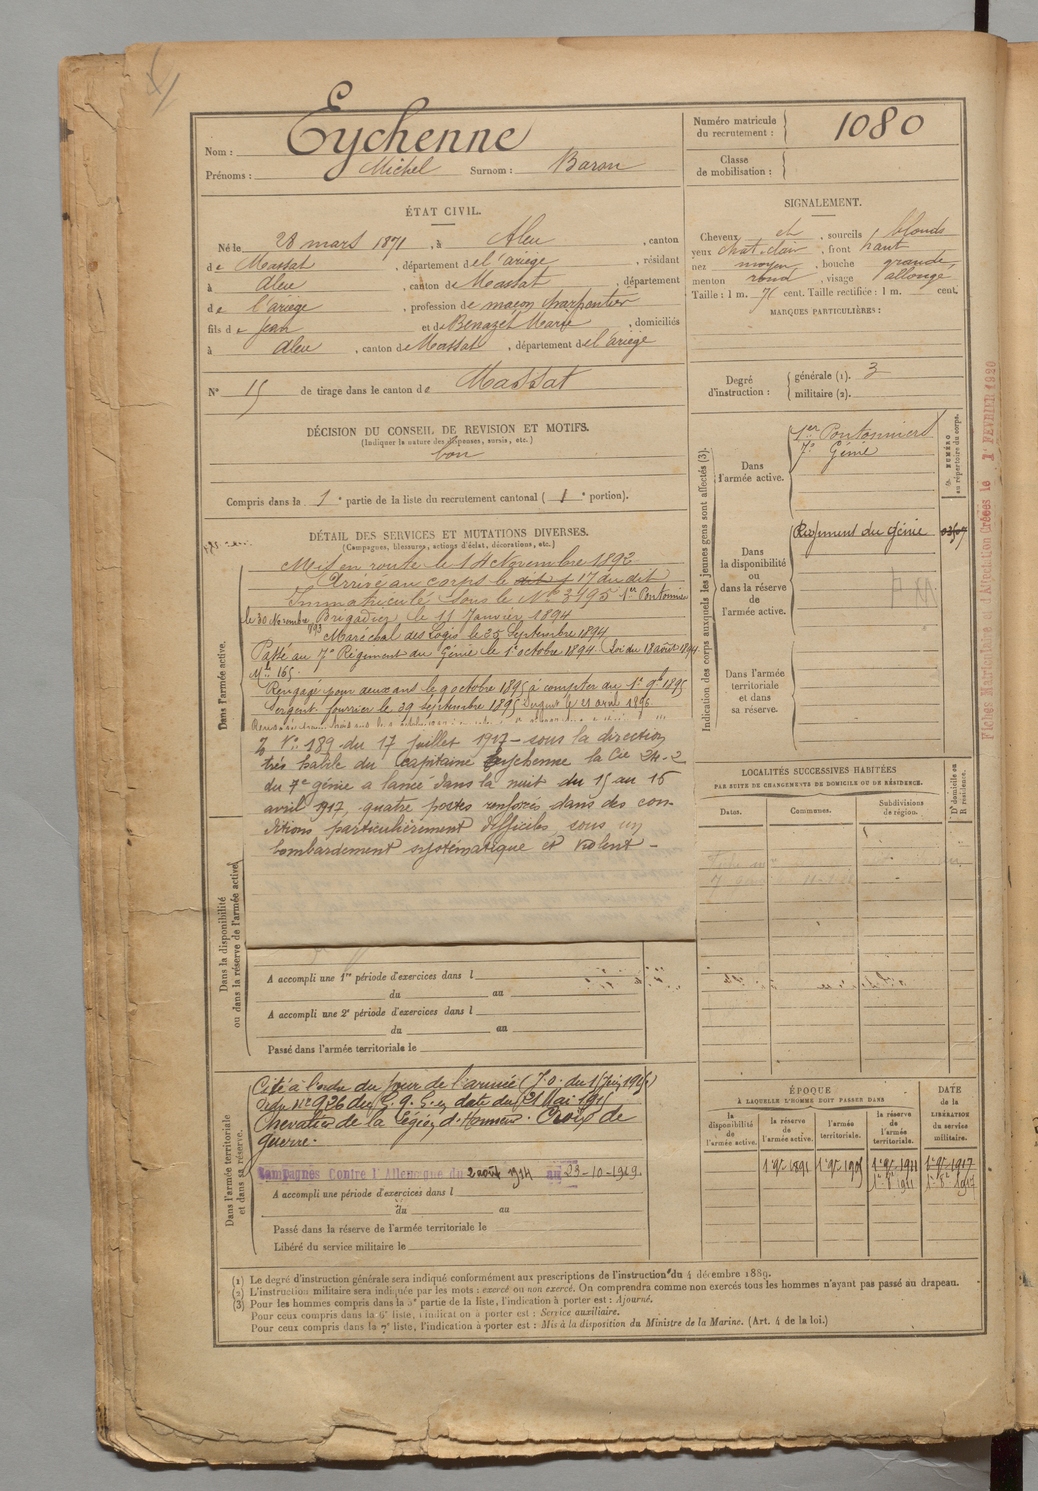 Nom : Eychenne
Prénoms : Michel Surnom : Baron
Numéro matricule
du recrutement : 1080
Classe
de mobilisation :
ÉTAT CIVIL.
Né le 28 mars 1871, à Aleu, canton
de Massat, département de l'ariège, résidant
à Aleu, canton de Massat, département
de l'ariège, profession de maçon charpentier
fils de Jean et de Benazet Marie, domiciliés
à Aleu, canton de Massat, département de l'ariège
N° 15 de tirage dans le canton de Massat
SIGNALEMENT.
Cheveux ch, sourcils blonds
yeux chat. clair, front haut
nez moyen, bouche grande,
menton rond, visage allongé,
Taille : 1 m. 71 cent. Taille rectifiée : 1 m. cent.
MARQUES PARTICULIÈRES :
Degré
d'instruction :
générale (1). 3
militaire (2).
DÉCISION DU CONSEIL DE REVISION ET MOTIFS.
(Indiquer la nature des dispenses, sursis, etc.)
bon
Compris dans la 1e partie de la liste du recrutement cantonal ( 1e portion).
DÉTAIL DES SERVICES ET MUTATIONS DIVERSES.
(Campagnes, blessures, actions d'éclat, décorations, etc.)
Dans l'armée active.
Mis en route le 14 Novembre 1892
Arrivé au corps le 17 du dit
Immatriculé sous le N° 3195 1er Pontonnier
le 30 Novembre 1893 Brigadier le 11 Janvier 1894
Maréchal des Logis le 25 Septembre 1894
Passé au 7e Régiment du Génie le 1er octobre 1894 Loi du 18 août 1894
Mle 165.
Rengagé pour deux ans le 9 octobre 1895 à compter du 1er 9bre 1895
Sergent fourrier le 29 septembre 1895 Sergent le 21 avril 1896
N° 189 du 17 juillet 1917 - sous la direction
très habile du Capitaine Eychenne la Cie 24-2
du 7e génie a lancé dans la nuit du 15 au 16
avril 1917, quatre postes renforcés dans des con-
ditions particulièrement difficiles sous un
bombardement systématique et violent -
Dans la disponibilité
ou dans la réserve de l'armée active.
A accompli une 1re période d'exercices dans l
du au
A accompli une 2e période d'exercices dans l
du au
Passé dans l'armée territoriale le
Dans l'armée territoriale
et dans sa réserve.
Cité à l'ordre du jour de l'armée (J.O. du 15 Juin 1915)
N° 926 du G.Q.G. en date du 21 Mai 1915
Chevalier de la Légion d'Honneur. Croix de
guerre.
Campagnes Contre l'Allemagne du 2 août 1914 au 23-10-1919.
A accompli une période d'exercices dans l
du au
Passé dans la réserve de l'armée territoriale le
Libéré du service militaire le
Indication des corps auxquels les jeunes gens sont affectés (3).
NUMÉRO
au répertoire du corps.
Dans
l'armée active.
1er Pontonniers
7e Génie
Dans
la disponibilité
ou
dans la réserve
de
l'armée active.
Régiment du Génie
Dans l'armée
territoriale
et dans
sa réserve.
Fiches Matriculaire et d'Affectation Créées le 1er FEVRIER 1920
LOCALITÉS SUCCESSIVES HABITÉES
PAR SUITE DE CHANGEMENTS DE DOMICILE OU DE RÉSIDENCE.
Dates. Communes. Subdivisions
de région.
D domicile ou
R résidence.
ÉPOQUE
À LAQUELLE L'HOMME DOIT PASSER DANS
la
disponibilité
de
l'armée active.
la réserve
de
l'armée active.
l'armée
territoriale.
la réserve
de
l'armée
territoriale.
DATE
de la
LIBÉRATION
du service
militaire.
(1) Le degré d'instruction générale sera indiqué conformément aux prescriptions de l'instruction du 4 décembre 1889.
(2) L'instruction militaire sera indiquée par les mots : exercé ou non exercé. On comprendra comme non exercés tous les hommes n'ayant pas passé au drapeau.
(3) Pour les hommes compris dans la 5e partie de la liste, l'indication à porter est : Ajourné.
Pour ceux compris dans la 6e liste, l'indication à porter est : Service auxiliaire.
Pour ceux compris dans la 7e liste, l'indication à porter est : Mis à la disposition du Ministre de la Marine. (Art. 4 de la loi.)